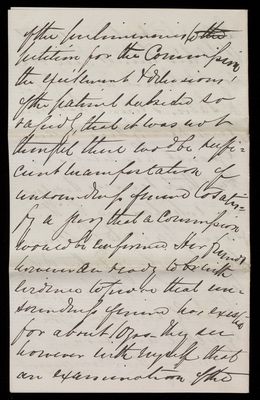 of the preliminaries to the
petition for the Commission
the excitement & delusions
of the patient subsided so
rapidly that it was not
thought there would be suffi-
cient manifestation of
unsoundness of mind to satis-
fy a jury that a Commission
would be confirmed Her friends
however are ready to
evidence to prove that un-
soundness of mind has existed
for about 10 yrs. They see
however with myself that
an examination of the